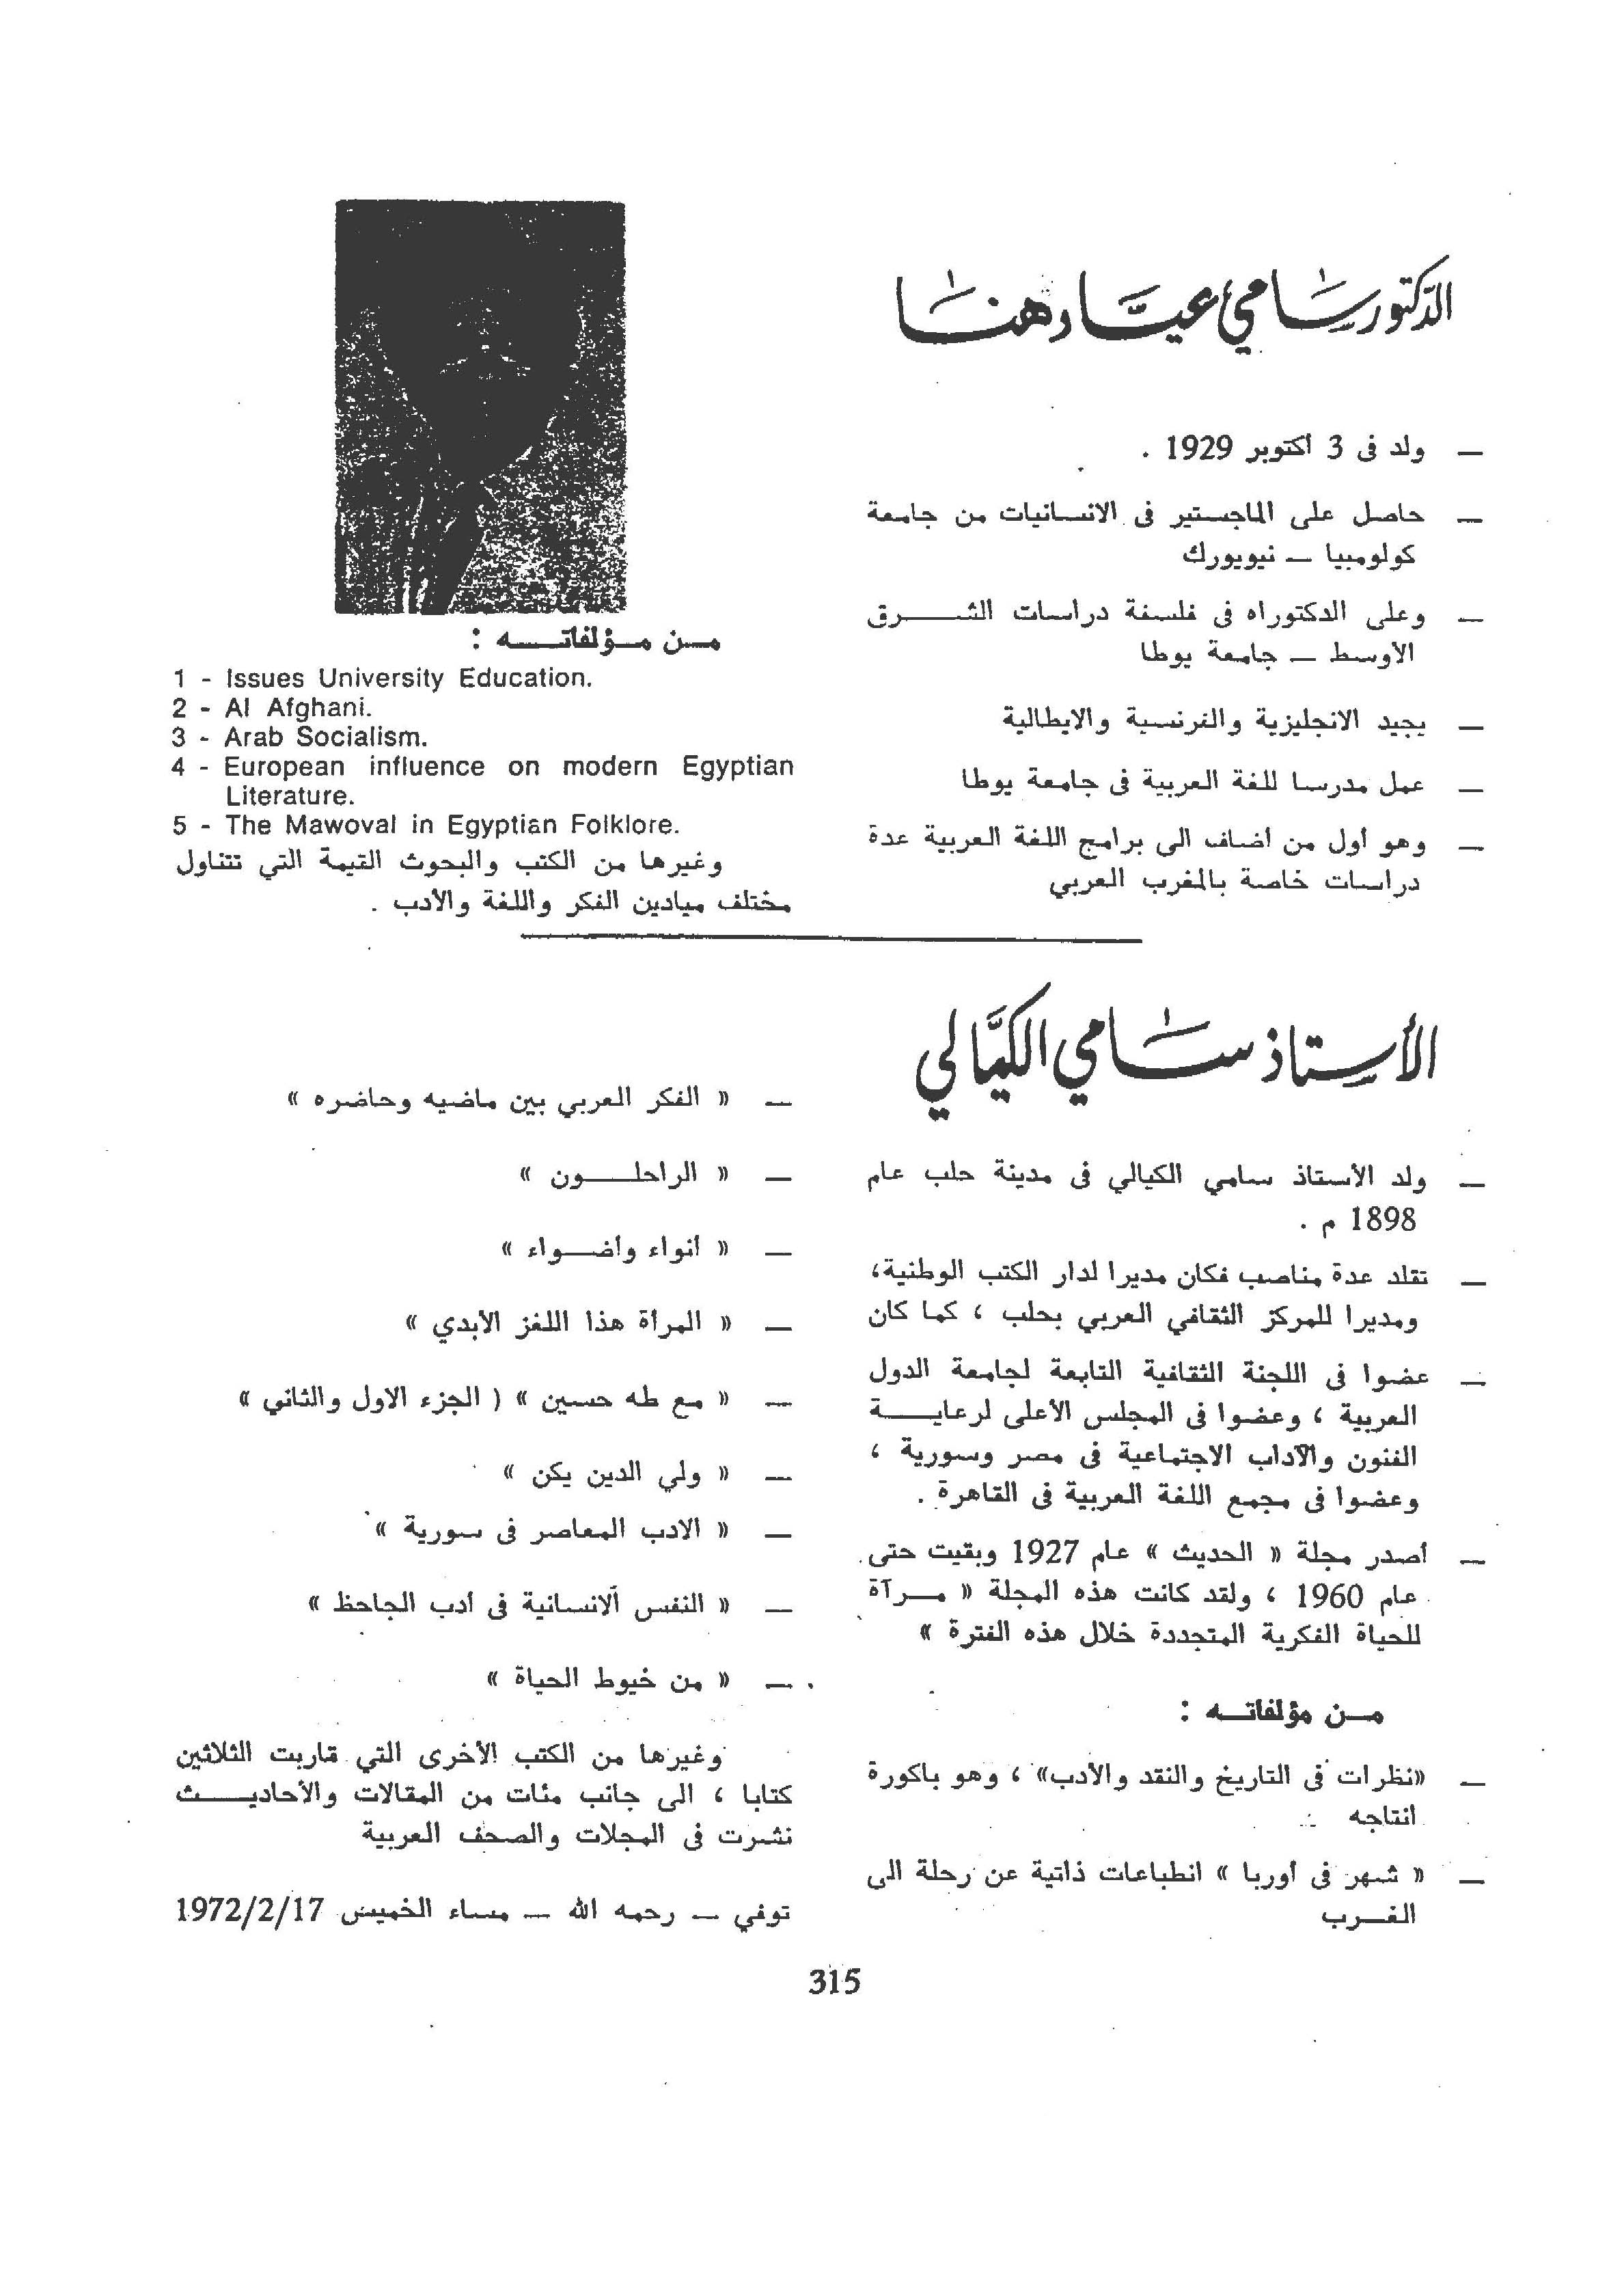 الدكتور سامي عياد هنا
— ولد فى 3 أكتوبر 1929 .
— حاصل على الماجستير فى الانسانيات من جامعة
كولومبيا — نيويورك
— وعلى الدكتوراه فى فلسفة دراسات الشرق
الأوسط — جامعة يوطا
— يجيد الانجليزية والفرنسية والايطالية
— عمل مدرسا للغة العربية فى جامعة يوطا
— وهو أول من أضاف الى برامج اللغة العربية عدة
دراسات خاصة بالمغرب العربي
من مؤلفاته :
1 - Issues University Education.
2 - Al Afghani.
3 - Arab Socialism.
4 - European influence on modern Egyptian
Literature.
5 - The Mawoval in Egyptian Folklore.
وغيرها من الكتب والبحوث القيمة التي تتناول
مختلف ميادين الفكر واللغة والأدب .
الأستاذ سامي الكيَّالي
— ولد الأستاذ سامي الكيالي فى مدينة حلب عام
1898 م .
— تقلد عدة مناصب فكان مديرا لدار الكتب الوطنية،
ومديرا للمركز الثقافي العربي بحلب ، كما كان
— عضوا فى اللجنة الثقافية التابعة لجامعة الدول
العربية ، وعضوا فى المجلس الأعلى لرعاية
الفنون والآداب الاجتماعية فى مصر وسورية ،
وعضوا فى مجمع اللغة العربية فى القاهرة .
— أصدر مجلة « الحديث » عام 1927 وبقيت حتى
عام 1960 ، ولقد كانت هذه المجلة « مرآة
للحياة الفكرية المتجددة خلال هذه الفترة »
من مؤلفاته :
— «نظرات فى التاريخ والنقد والأدب» ، وهو باكورة
انتاجه
— « شهر فى أوربا » انطباعات ذاتية عن رحلة الى
الغرب
— « الفكر العربي بين ماضيه وحاضره »
— « الراحلون »
— « أنواء وأضواء »
— « المرأة هذا اللغز الأبدي »
— « مع طه حسين » ( الجزء الاول والثاني »
— « ولي الدين يكن »
— « الادب المعاصر فى سورية »
— « النفس الانسانية فى أدب الجاحظ »
— « من خيوط الحياة »
وغيرها من الكتب الأخرى التي قاربت الثلاثين
كتابا ، الى جانب مئات من المقالات والأحاديث
نشرت فى المجلات والصحف العربية
توفي — رحمه الله — مساء الخميس 1972/2/17
315